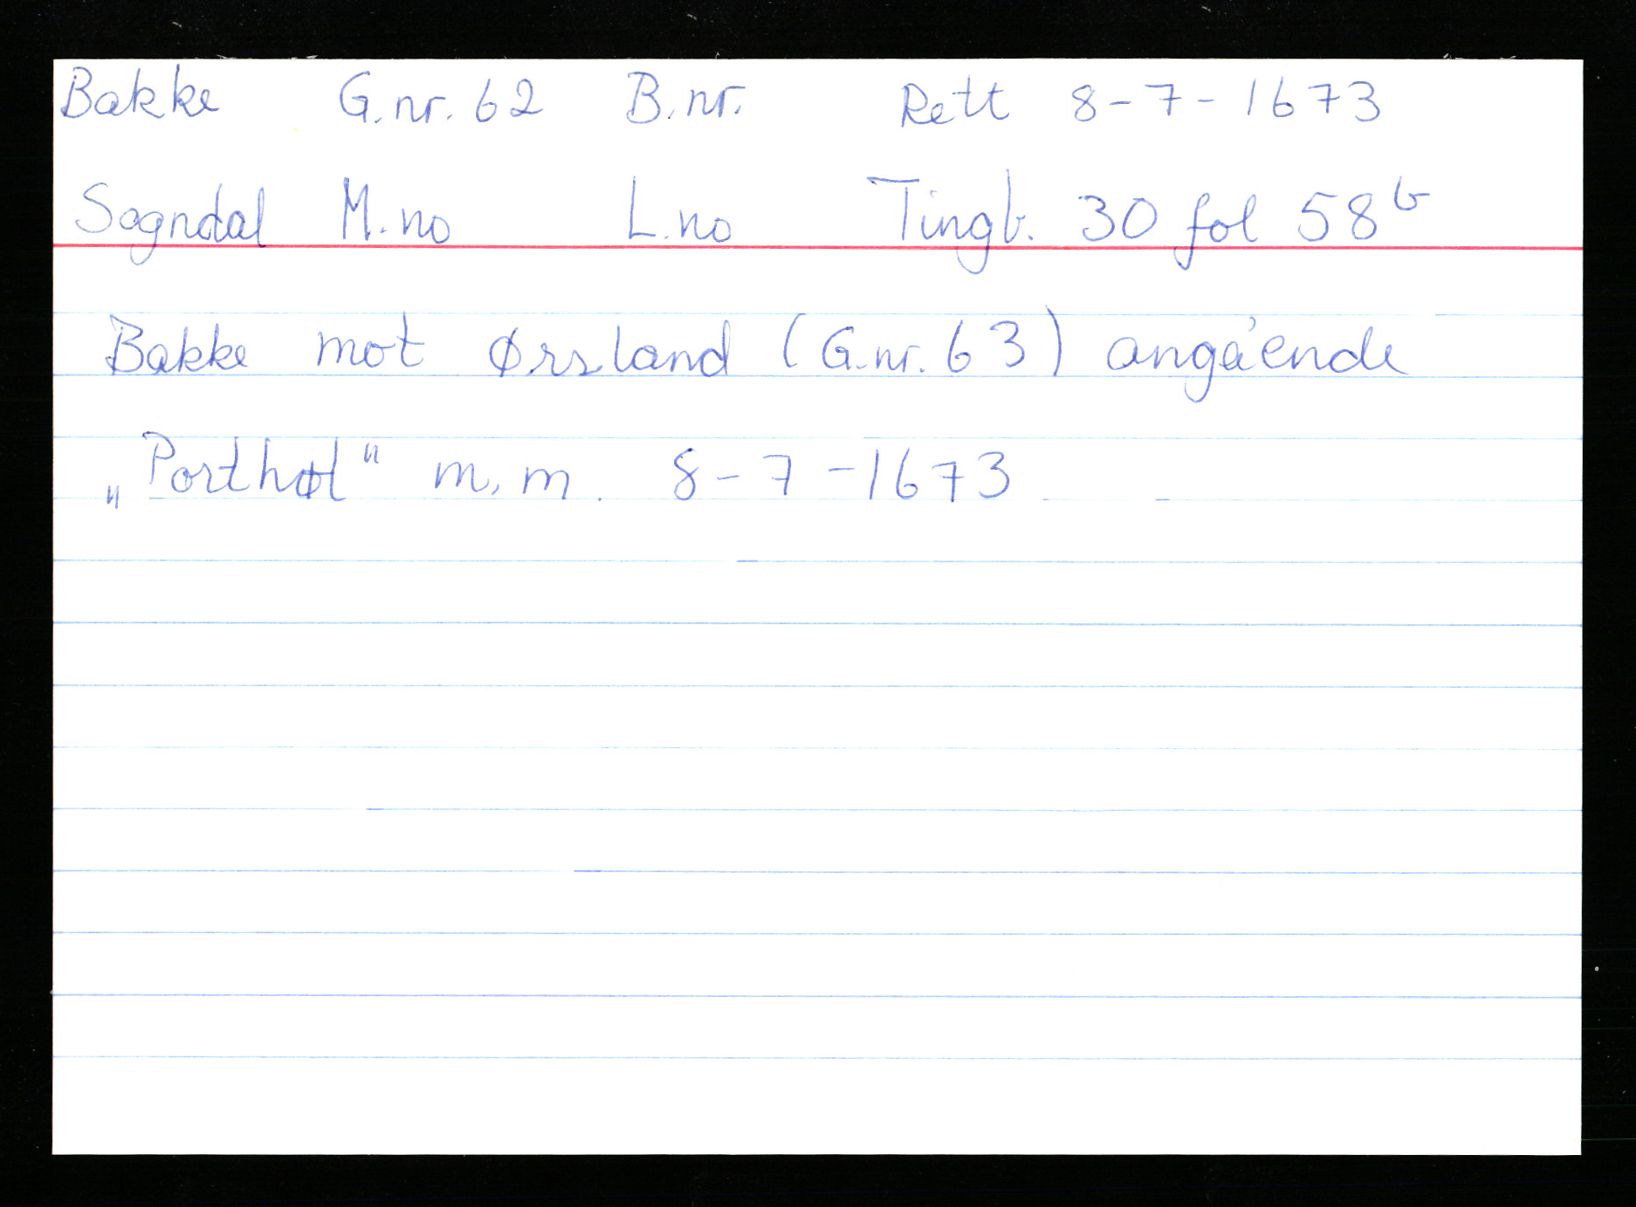 Bakke G.nr. 62 B.nr. Rett 8-7-1673
Sogndal M.no L.no Tingb. 30 fol 58b
Bakke mot Ørsland (G.nr. 63) angående
„Porthøl" m.m. 8-7-1673